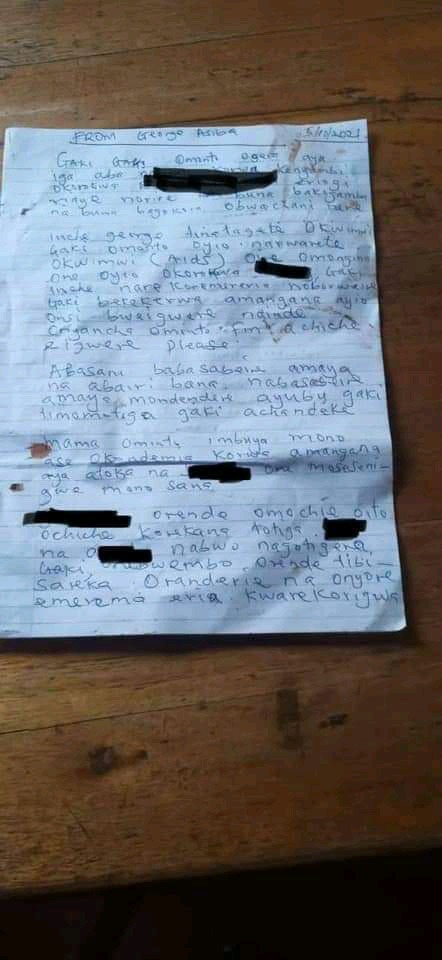 FROM George Asiba 5/10/2021
Gaki Gaki Ominto Ogera aya
iga aba Kengambi
Okorotwa erisgi
riaye norire buna bakigamba
na buna bagokora obwachani bare
Inche george tinetagete Okwimwi
Gaki omosito oyio narwarete
Okwimwi (Aids) One omongina
one oyio okorokwa Gaki
Inche nare koremereria noborwaire
Gaki beteketwa amangana ayio
onsi bweigwere ngiade
Onyanche ominto fim achiche
rigwere please.
Abasani babasabaire amaya
na abairi bana nabasabaire
amaya mondendere ayuby gaki
timomotiga gaki achandeke
Mama Ominto imbuya mono
ase Okoademia Korwa amangana
aya atoka na one moseseni-
gwe mono sana
orende omochie oito
ochiche korekana totiga
na nabwo nagotigera
Gaki, nabwembo. Orende tibi-
sareka Oranderie na onyore
emerema eria kwarekorigwa